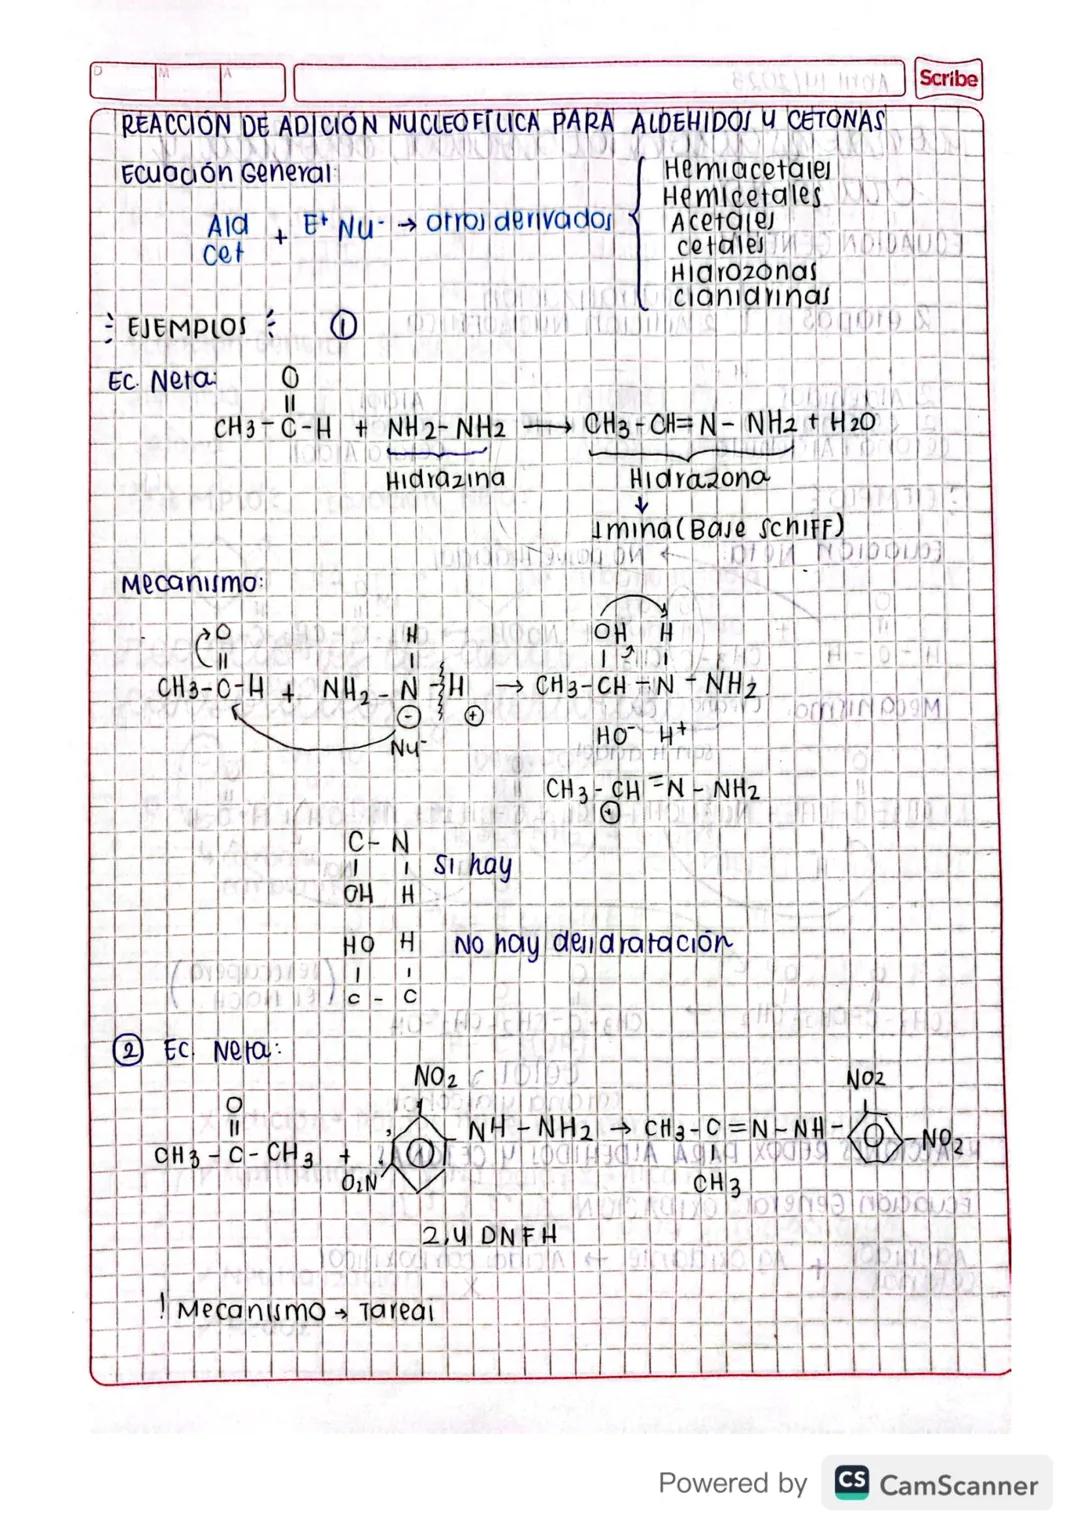 D M A
Scribe
REACCIÓN DE ADICIÓN NUCLEOFÍLICA PARA ALDEHIDOS Y CETONAS
Ecuación General:
Ald
Cet
+ E+ Nu- → otros derivados
Hemiacetales
Hemicetales
Acetales
cetales
Hidrozonas
cianidrinas
EJEMPLOS ①
Ec. Neta:
O
||
CH3-C-H + NH2-NH2 → CH3-CH=N-NH2 + H2O
Hidrazina
Hidrazona
↓
Imina (Base SCHIFF)
Mecanismo:
O H OH H
CH3-C-H + NH2-N-H → CH3-CH-N-NH2
⊖ ⊕
Nu-
HO- H+
CH3-CH=N-NH2
⊕
C-N
OH H
Si hay
HO H
C-C
No hay desidratación
② EC. Neta:
NO2 NO2
O
||
CH3-C-CH3 + NH-NH2 → CH3-C=N-NH- -NO2
O2N
CH3
2,4 DNFH
! Mecanismo → Tarea!
Powered by CS CamScanner